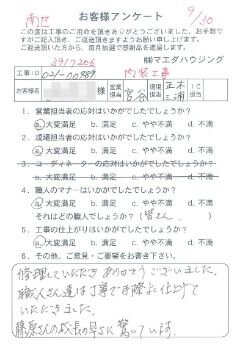 南区
お客様アンケート
9/30
この度は工事のご用命を頂きありがとうございました。お手数で
すがご記入頂き、ご返送頂きますようお願い申し上げます。
ご返送頂いた方から、毎月抽選で感謝品を進呈します。
3917206
㈱マエダハウジング
工事ID 021-00989
内装工事
お客様名 様 営業担当 宮谷 現場担当 正木 三浦 IC担当
1. 営業担当者の応対はいかがでしたでしょうか?
a. 大変満足 b. 満足 c. やや不満 d. 不満
2. 現場担当者の応対はいかがでしたでしょうか?
a. 大変満足 b. 満足 c. やや不満 d. 不満
3. コーディネーターの応対はいかがでしたでしょうか?
a. 大変満足 b. 満足 c. やや不満 d. 不満
4. 職人のマナーはいかがでしたでしょうか?
a. 大変満足 b. 満足 c. やや不満 d. 不満
それはどの職人でしょうか?(皆さん )
5. 工事の仕上がりはいかがでしたでしょうか?
a. 大変満足 b. 満足 c. やや不満 d. 不満
6. その他、ご意見・ご要望をお書き下さい。
修理していただきありがとうございました。
職人さん達は丁寧で手際よく仕上げて
いただきました。
藤原さんの成長の早さに驚いています。